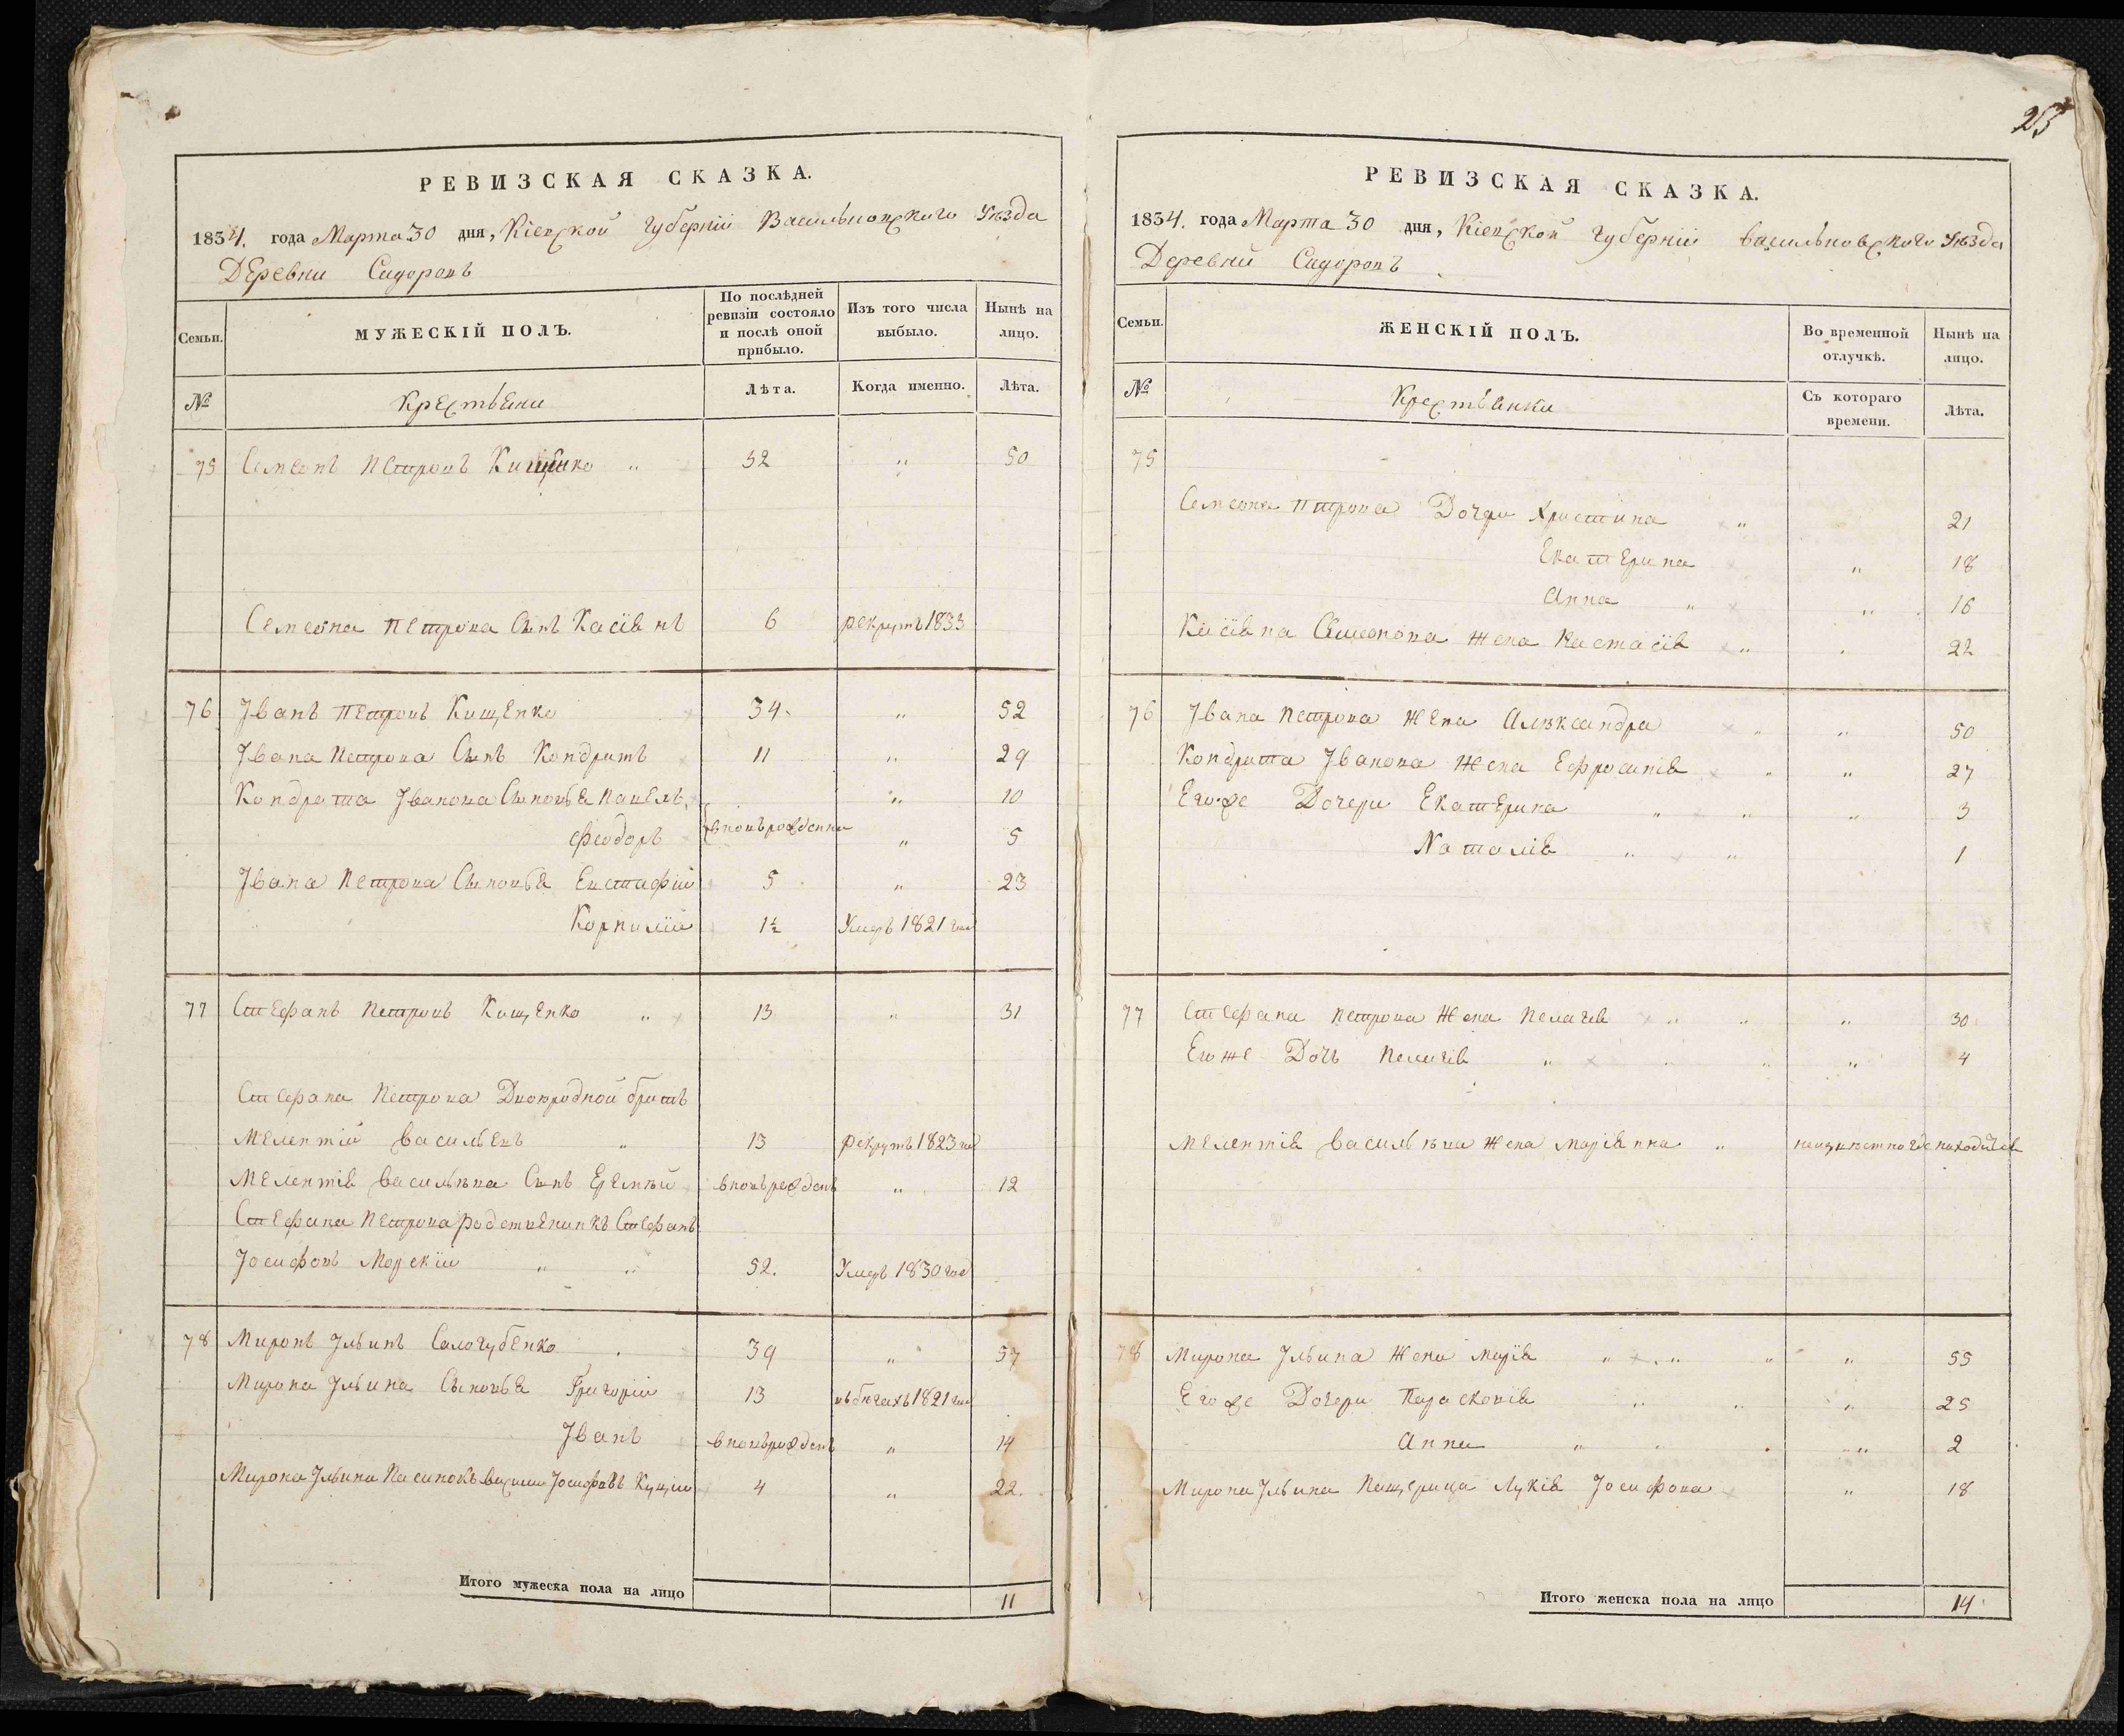 25
РЕВИЗСКАЯ СКАЗКА.
1834. года Марта 30 дня, Кіевской Губерніи Васильковского Уѣзда
Деревни Сидоровъ
Семьи.
МУЖЕСКІЙ ПОЛЪ.
По послѣдней ревизіи состояло и послѣ оной прибыло.
Изъ того числа выбыло.
Нынѣ на лицо.
№
Крестьяни
Лѣта.
Когда именно.
Лѣта.
75 Семенъ Петровъ Кищенко „ 32 „ 50
Семена Петрова Сынъ Касіянъ 6 рекрутъ 1833
76 Іванъ Петровъ Кищенко 34 „ 52
Івана Петрова Сынъ Кондратъ 11 „ 29
Кондрата Іванова Сыновья Павелъ „ 10
Феодоръ вновь рожденни „ 5
Івана Петрова Сыновья Евстафій 5 „ 23
Корнилій 1½ Умеръ 1821 год
77 Стефанъ Петровъ Кищенко „ 13 „ 31
Стефана Петрова Двоюродной братъ
Мелентій Васильевъ „ 13 рекрутъ 1823 год
Мелентія Васильева Сынъ Еремѣй вновь рожденъ „ 12
Стефана Петрова родственникъ Стефанъ
ІосифовъМорскій „ „ 52. Умеръ 1830 год
78 Миронъ Ільинъ Салогубенко 39 „ 57
Мирона Ільина Сыновья Григорій 13 въ бѣгахъ 1821 год
Іванъ вновь рожденъ „ 14
Мирона Ільина Пасинокъ Василій Іосифовъ Куцій 4 „ 22.
Итого мужеска пола на лицо 11
РЕВИЗСКАЯ СКАЗКА.
1834. года Марта 30 дня, Кіевской Губерніи Васильковского Уѣзда
Деревни Сидоровъ
Семьи.
ЖЕНСКІЙ ПОЛЪ.
Во временной отлучкѣ.
Нынѣ на лицо.
№
Крестьянки
Съ котораго времени.
Лѣта.
75
Семена Петрова Дочери Христина „ 21
Екатерина „ 18
Анна „ „ 16
Касіяна Симонова жена Настасія „ 22
76 Івана Петрова Жена Александра „ „ 50
Кондрата Іванова Жена Ефросинія „ „ 27
Егоже Дочери Екатерина „ „ „ 3
Наталія „ „ 1
77 Стефана Петрова Жена Пелагія „ „ „ 30
Егоже Дочь Пелагія „ „ „ 4
Мелентія Васильева Жена Маріянна „ неизвѣстно где находится
78 Мирона Ільина Жена Марія „ „ „ „ 55
Егоже Дочери Парасковія „ „ „ 25
Анна „ „ „ 2
Мирона Ільина Пащерица Лукія Іосифова „ 18
Итого женска пола на лицо 14